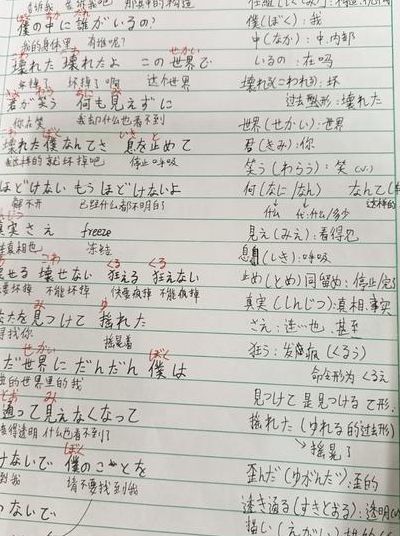 告诉我 告诉我吧 那其中的构造
ぼく なか だれ
僕の中に誰がいるの?
我的身体里 有谁呢?
こわ こわ せかい
壊れた 壊れたよ この世界で
坏掉了 坏掉了啊 这个世界
きみ わら なに み
君が笑う 何も見えずに
你在笑 我却什么也看不到
こわ ぼく いき と
壊れた僕なんてさ 息を止めて
就坏掉吧 停止呼吸
ほどけない もう ほどけないよ
解不开 已经什么都不明白了
真実さえ freeze
真相也 冻结
こわ くる くる
壊せる 壊せない 狂える 狂えない
要坏掉 不能坏掉 快要疯掉 不能疯掉
み ゆ
を見つけて 揺れた
寻找你 摇晃着
せかい ぼく
だ世界にだんだん僕は
的世界里的我
とお み
通って見えなくなって
得透明 什么也看不到了
ぼく
けないで 僕のことを
到我 请不要找到我
ないで
僕(ぼく):我
中(なか):中,内部
いるの:在吗
壊れる(こわれる):坏
过去整形:壊れた
世界(せかい):世界
君(きみ):你
笑う(わらう):笑(v.)
何(なに/なん) なんて
什么 代:什么/多少 这样的
見え(みえ):看得见
息(いき):呼吸
止め(とめ)同留め:停止
真実(しんじつ):真相,事实
さえ:连…也,甚至
狂う:发疯(くるう)
命令形为くるえ
見つけて是見つけるて形
揺れた(ゆれる的过去形)
→摇晃了
歪んだ(ゆがんだ):歪的
透き通る(すきとおる):透明
描い(えがい)